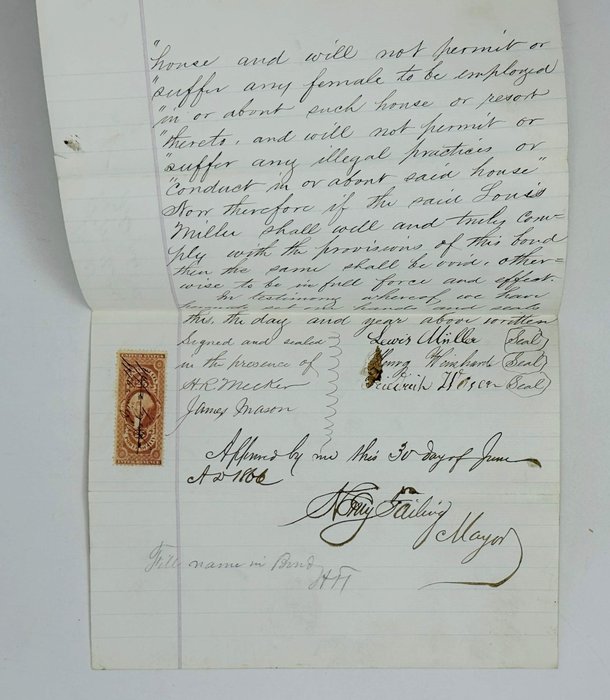 "house and will not permit or
"suffer any female to be employed
"in or about such house or resort
"thereto, and will not permit or
"suffer any illegal practices or
"conduct in or about said house"
Now therefore if the said Louis
Miller shall well and truly com=
ply with the provisions of this bond
then the same shall be void, other=
wise to be in full force and effect.
In testimony whereof, we have
hereunto set our hands and seals
this the day and year above written
Signed and sealed
in the presence of
A R Meeker
James Mason
Lewis Müller (Seal)
Henry Weinhard (Seal)
(Seal)
Approved by me this 30 day of June
A D 1866
Henry Failing
Mayor
Fill name in Bond
HF